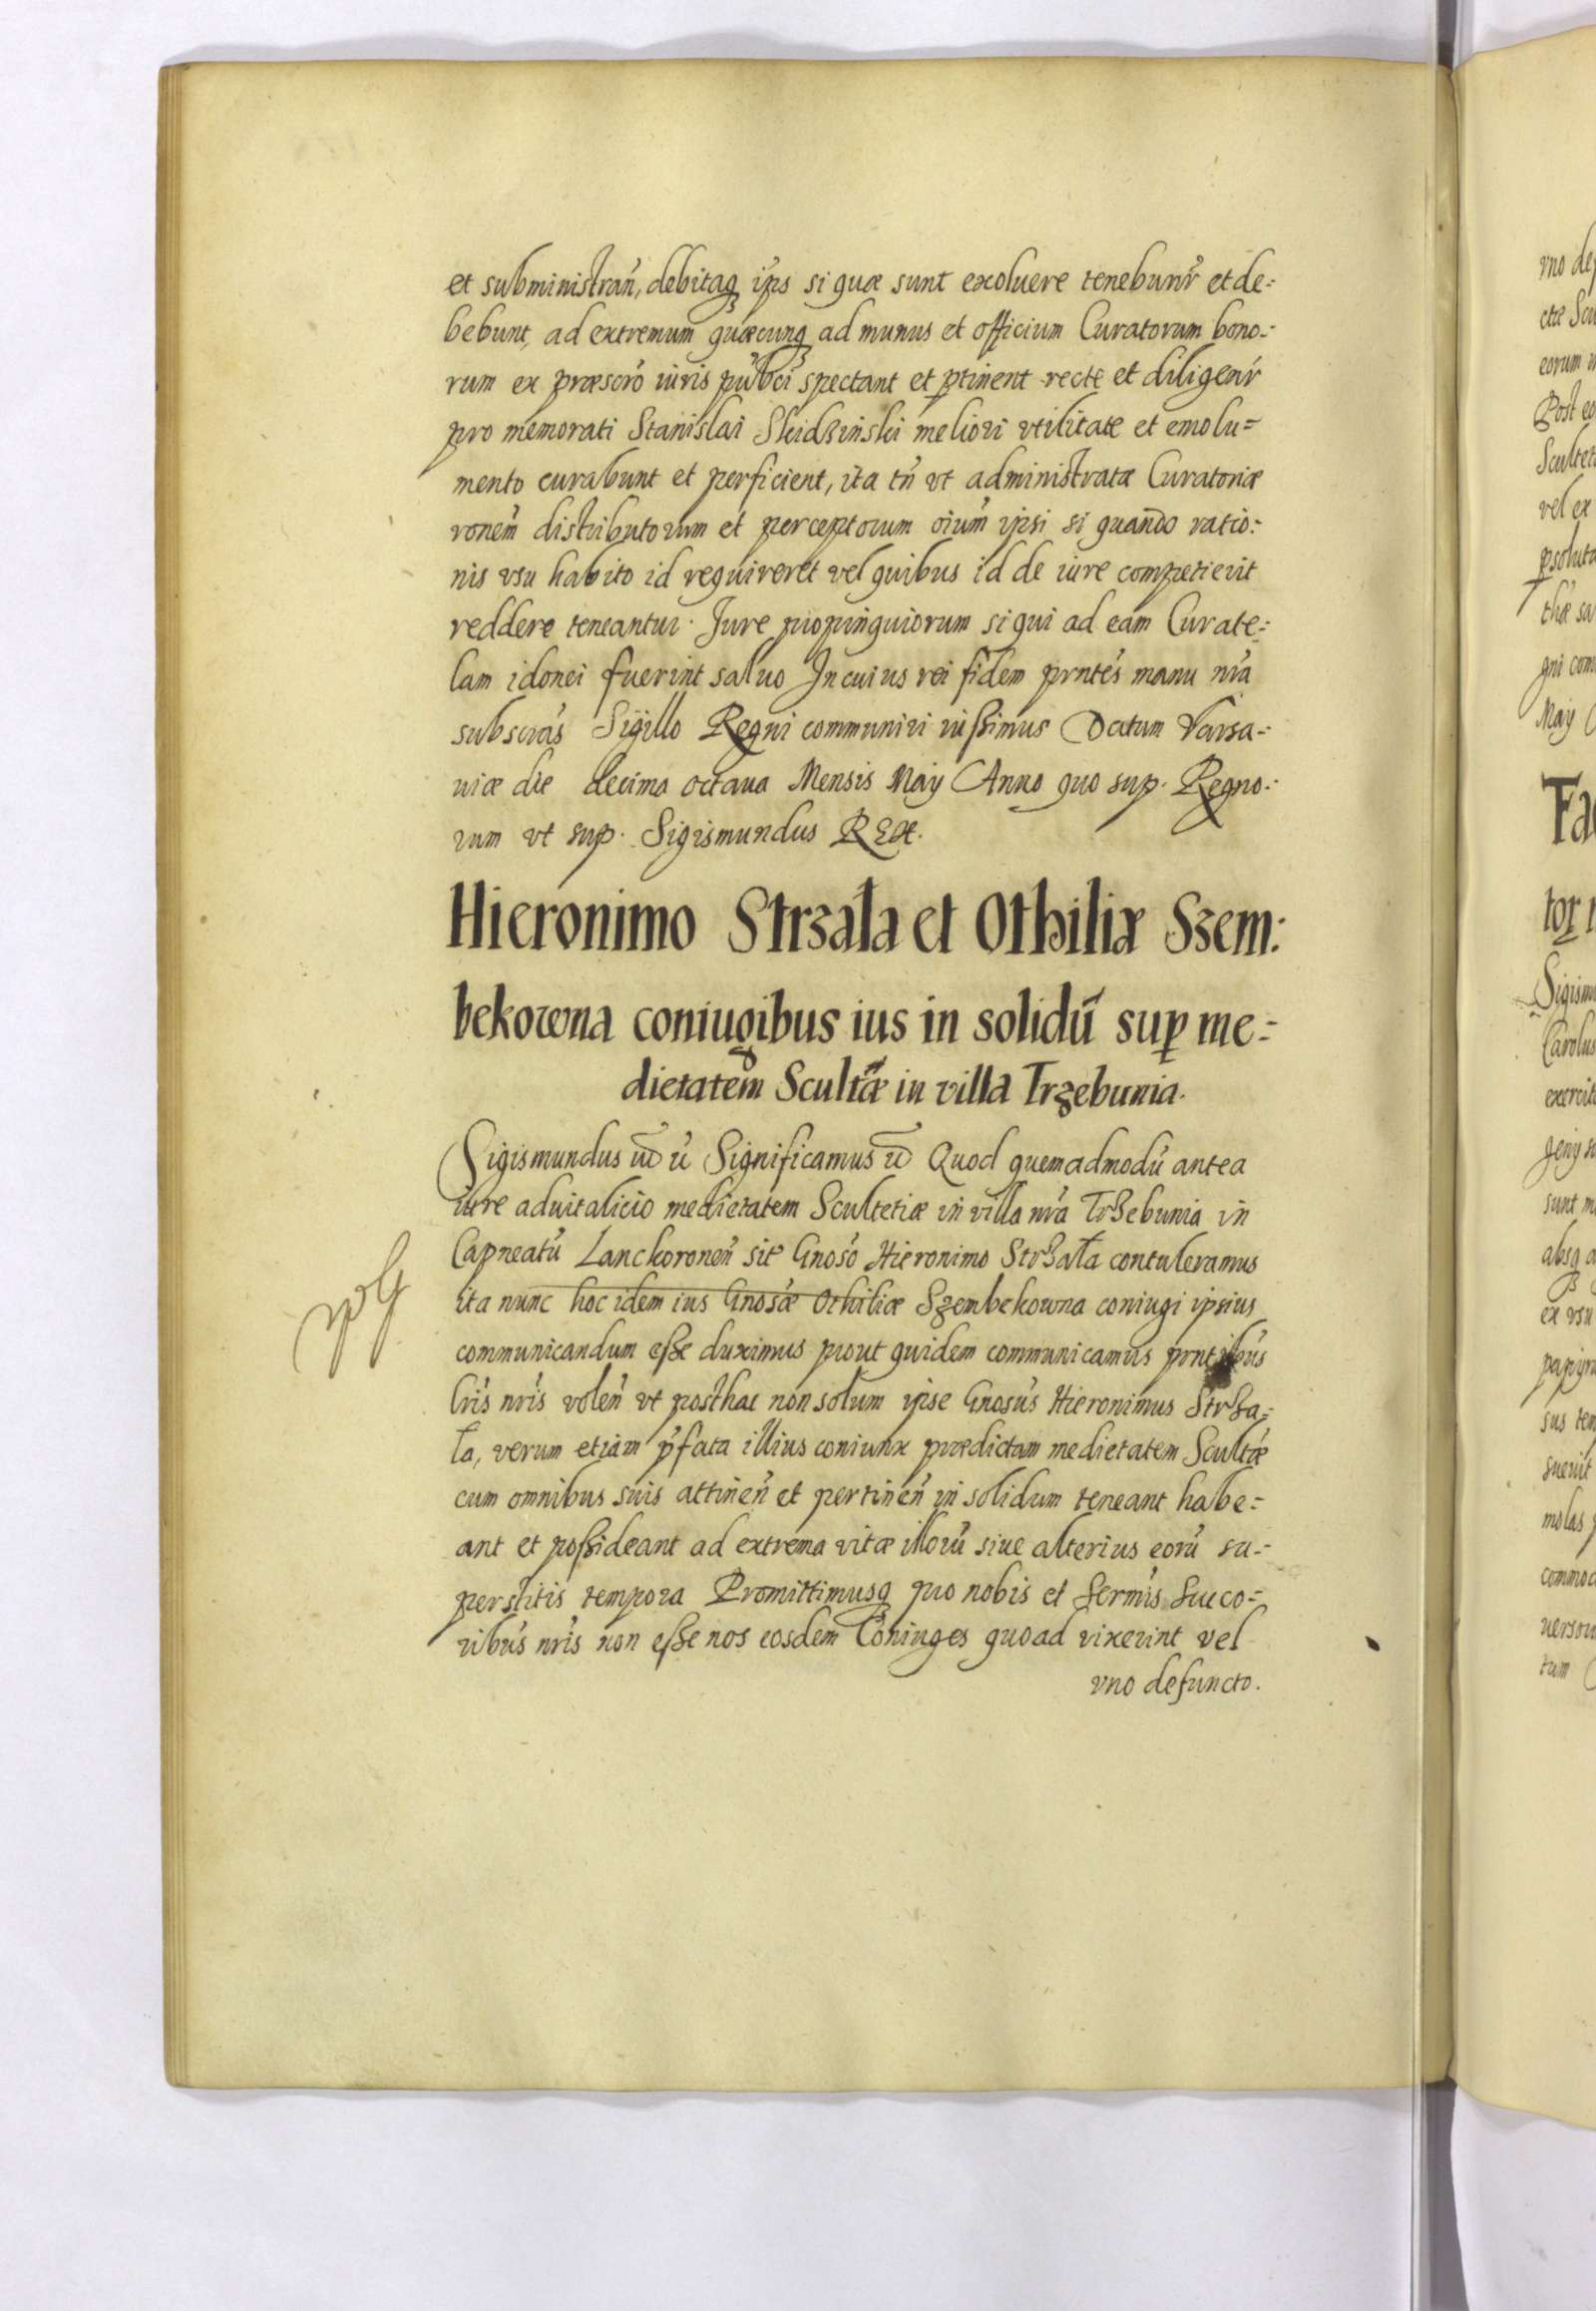 et subministrañ, debitaq₃ ip̃s si quæ sunt exoluere tenebunt̃r et de:
bebunt, ad extremum quæcunq₃ ad munus et officium Curatorum bono:
rum ex præscr̃o iuris pub̃ci spectant et ꝑtinent recte et diligent̃r
pro memorati Stanislai Skidzinski meliori vtilitate et emolu=
mento curabunt et perficient, ita tñ vt administratæ Curatoriæ
rõnem distributorum et perceptorum oium̃ ipsi si quando ratio:
nis vsu habito id requireret vel quibus id de iure competierit
reddere teneantur. Jure propinquiorum si qui ad eam Curate:
lam idonei fuerint saluo In cuius rei fidem prñtes manu nr̃a
subscr̃as Sigillo Regni communiri iussimus Datum Varsa:
uiæ die decima octaua Mensis Maÿ Anno quo sup. Regno:
rum vt sup. Sigismundus REX.
Hieronimo Strzała et Othiliæ Szem:
bekowna coniugibus ius in solidū suꝑ me:
dietatem Scult̃æ in villa Trzebunia.
Sigismundus ... Significamus ... Quod quemadmodū antea
iure aduitalicio medietatem Scultetiæ in villa nr̃a Trzebunia in
Capneatū Lanckoroneñ sit̃ Gnoso Hieronimo Strzała contuleramus
ita nunc hoc idem ius Gnosæ Othiliæ Szembekowna coniugi ipsius
communicandum esse duximus prout quidem communicamus prñtibus
lr̃is nr̃is voleñ vt posthac non solum ipse Gnosus Hieronimus Strza:
ła, verum etiam p̃fata illius coniunx prædictam medietatem Scult̃æ
cum omnibus suis attineñ et pertineñ in solidum teneant habe=
ant et possideant ad extrema vitæ illorū siue alterius eorū su:
perstitis tempora Promittimusq₃ pro nobis et Sermis Succo=
ribus nr̃is non esse nos eosdem Coniuges quoad vixerint vel
vno defuncto.